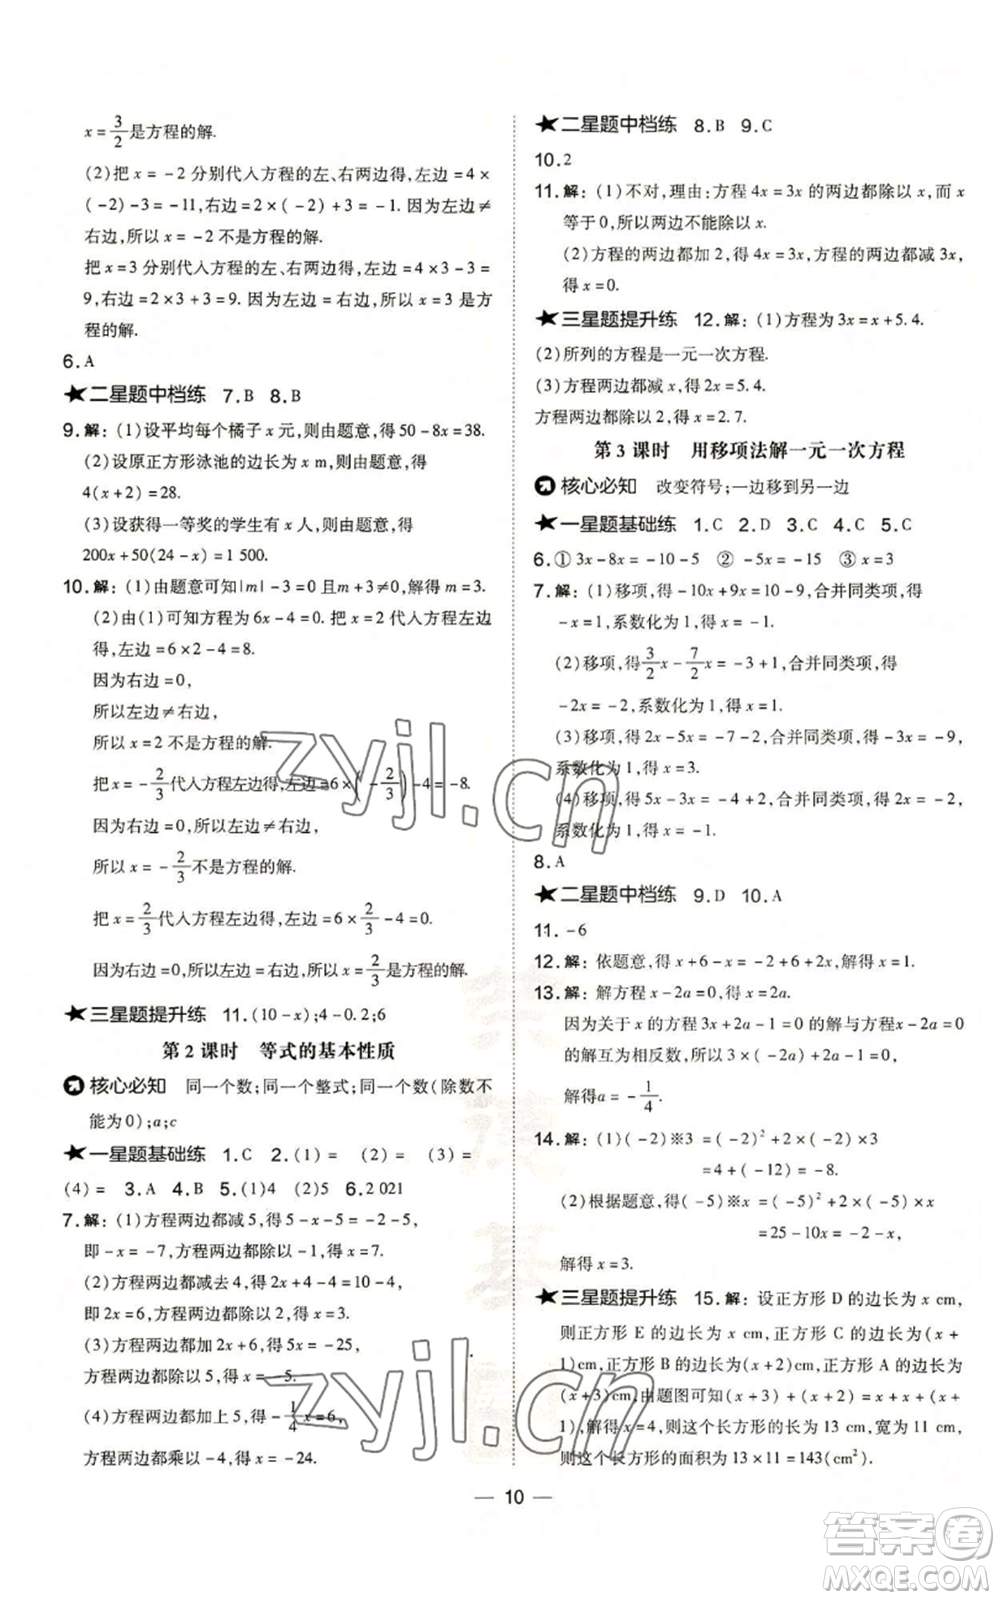 x = 3/2 是方程的解.
(2)把 x = -2 分别代入方程的左、右两边得,左边 = 4 ×
(-2)-3=-11,右边=2×(-2)+3=-1. 因为左边≠
右边,所以 x = -2 不是方程的解.
把 x = 3 分别代入方程的左、右两边得,左边 = 4×3-3 =
9,右边=2×3+3=9. 因为左边=右边,所以 x = 3 是方
程的解.
6. A
★ 二星题中档练 7. B 8. B
9. 解:(1)设平均每个橘子 x 元,则由题意,得 50-8x=38.
(2)设原正方形泳池的边长为 x m,则由题意,得
4(x+2)=28.
(3)设获得一等奖的学生有 x 人,则由题意,得
200x+50(24-x)=1 500.
10. 解:(1)由题意可知|m|-3=0 且 m+3≠0,解得 m=3.
(2)由(1)可知方程为 6x-4=0. 把 x=2 代入方程左边
得,左边=6×2-4=8.
因为右边=0,
所以左边≠右边,
所以 x=2 不是方程的解.
把 x=-2/3 代入方程左边得,左边=6×(-2/3)-4=-8.
因为右边=0,所以左边≠右边,
所以 x=-2/3 不是方程的解.
把 x=2/3 代入方程左边得,左边=6×2/3-4=0.
因为右边=0,所以左边=右边,所以 x=2/3 是方程的解.
★ 三星题提升练 11. (10-x);4-0.2;6
第 2 课时 等式的基本性质
核心必知 同一个数;同一个整式;同一个数(除数不
能为 0);a;c
★ 一星题基础练 1. C 2. (1)= (2)= (3)=
(4)= 3. A 4. B 5. (1)4 (2)5 6. 2 021
7. 解:(1)方程两边都减 5,得 5-x-5=-2-5,
即-x=-7,方程两边都除以-1,得 x=7.
(2)方程两边都减去 4,得 2x+4-4=10-4,
即 2x=6,方程两边都除以 2,得 x=3.
(3)方程两边都加 2x+6,得 5x=-25,
方程两边都除以 5,得 x=-5.
(4)方程两边都加上 5,得 -1/4 x=6,
方程两边都乘以-4,得 x=-24.
★ 二星题中档练 8. B 9. C
10. 2
11. 解:(1)不对,理由:方程 4x=3x 的两边都除以 x,而 x
等于 0,所以两边不能除以 x.
(2)方程的两边都加 2,得 4x=3x,方程的两边都减 3x,
得 x=0.
★ 三星题提升练 12. 解:(1)方程为 3x=x+5.4.
(2)所列的方程是一元一次方程.
(3)方程两边都减 x,得 2x=5.4,
方程两边都除以 2,得 x=2.7.
第 3 课时 用移项法解一元一次方程
核心必知 改变符号;一边移到另一边
★ 一星题基础练 1. C 2. D 3. C 4. C 5. C
6. ① 3x-8x=-10-5 ② -5x=-15 ③ x=3
7. 解:(1)移项,得-10x+9x=10-9,合并同类项,得
-x=1,系数化为 1,得 x=-1.
(2)移项,得 3/2 x-7/2 x=-3+1,合并同类项,得
-2x=-2,系数化为 1,得 x=1.
(3)移项,得 2x-5x=-7-2,合并同类项,得-3x=-9,
系数化为 1,得 x=3.
(4)移项,得 5x-3x=-4+2,合并同类项,得 2x=-2,
系数化为 1,得 x=-1.
8. A
★ 二星题中档练 9. D 10. A
11. -6
12. 解:依题意,得 x+6-x=-2(x-4),解得 x=1.
13. 解:解方程 x-2a=0,得 x=2a.
因为关于 x 的方程 3x+2a-1=0 的解与方程x-2a=0
的解互为相反数,所以 3×(-2a)+2a-1=0,
解得a=-1/4.
14. 解:(1)(-2)※3=(-2)²+2×(-2)×3
=4+(-12)=-8.
(2)根据题意,得(-5)※x=(-5)²+2×(-5)×x
=25-10x=-2-x,
解得 x=3.
★ 三星题提升练 15. 解:设正方形 D 的边长为 x cm,
则正方形 E 的边长为 x cm,正方形 C 的边长为(x+
1)cm,正方形 B 的边长为(x+2)cm,正方形 A 的边长为
(x+3)cm,由题图可知(x+3)+(x+2)=x+x+(x+
1),解得 x=4,则这个长方形的长为 13 cm,宽为 11 cm,
则这个长方形的面积为 13×11=143(cm²).
10
zyjl.cn
zyjl.cn
答案卷
MXQE.COM